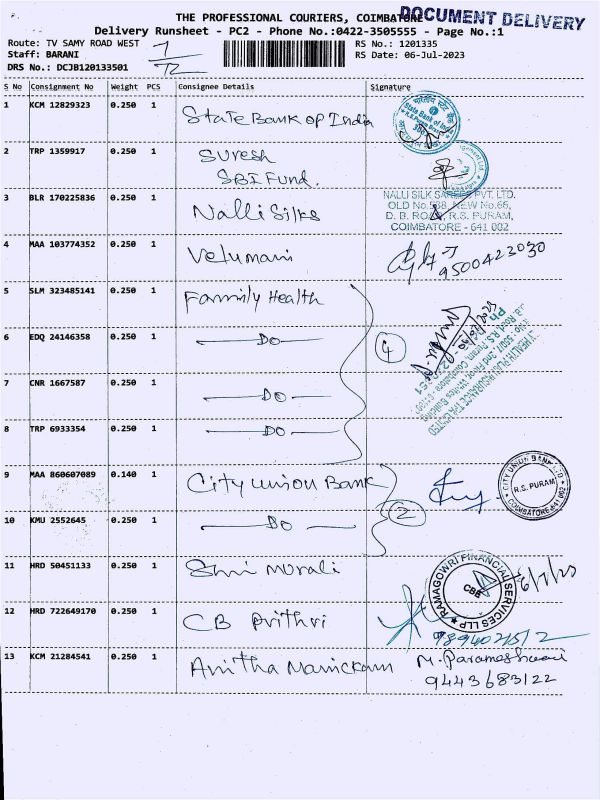 THE PROFESSIONAL COURIERS, COIMBATORE
DOCUMENT DELIVERY
Delivery Runsheet - PC2 - Phone No.:0422-3505555 - Page No.:1
Route: TV SAMY ROAD WEST
RS No.: 1201335
Staff: BARANI
RS Date: 06-Jul-2023
DRS No.: DCJB120133501
S No Consignment No Weight PCS Consignee Details Signature
1 KCM 12829323 0.250 1 State Bank of India
2 TRP 1359917 0.250 1 Suresh
SBI Fund.
3 BLR 170225836 0.250 1 Nalli Silks
NALLI SILK SAREES PVT. LTD.
OLD No.538, NEW No.66,
D. B. ROAD, R.S. PURAM,
COIMBATORE - 641 002
4 MAA 103774352 0.250 1 Velumani
9500423030
5 SLM 323485141 0.250 1 Family Health
6 EDQ 24146358 0.250 1 DO
4
7 CNR 1667587 0.250 1 DO
8 TRP 6933354 0.250 1 DO
9 MAA 860607089 0.140 1 City Union Bank
CITY UNION BANK LTD
R.S. PURAM
COIMBATORE-641 002
10 KMU 2552645 0.250 1 DO
2
11 HRD 50451133 0.250 1 Shri Murali
RAMAGOWRI FINANCIAL SERVICES LLP
CBE
12 HRD 722649170 0.250 1 CB Prithri
13 KCM 21284541 0.250 1 Anitha Manickam
M. Parameshwari
9443683122